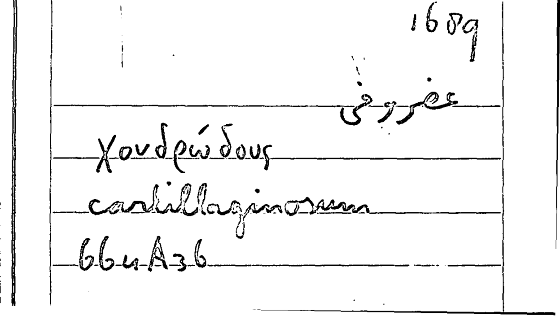 1689
غضروفى
χονδρώδους
cartillaginosum
66u A36